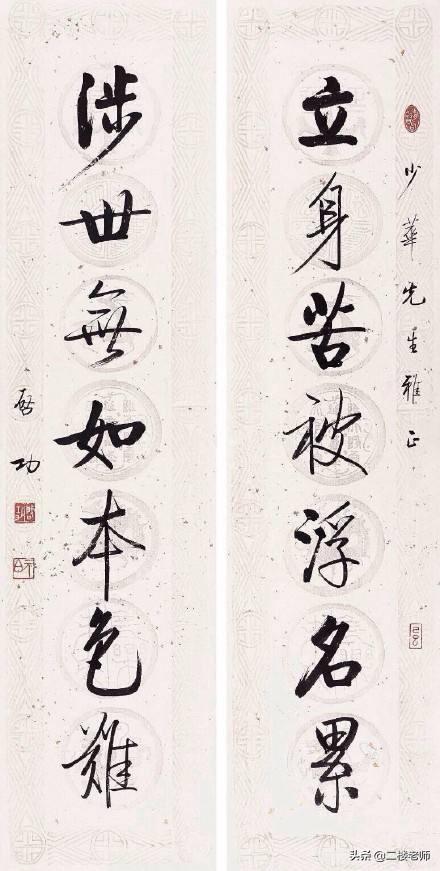 少華先生雅正
立身苦被浮名累
涉世無如本色難
啓功
头条 @二楼老师